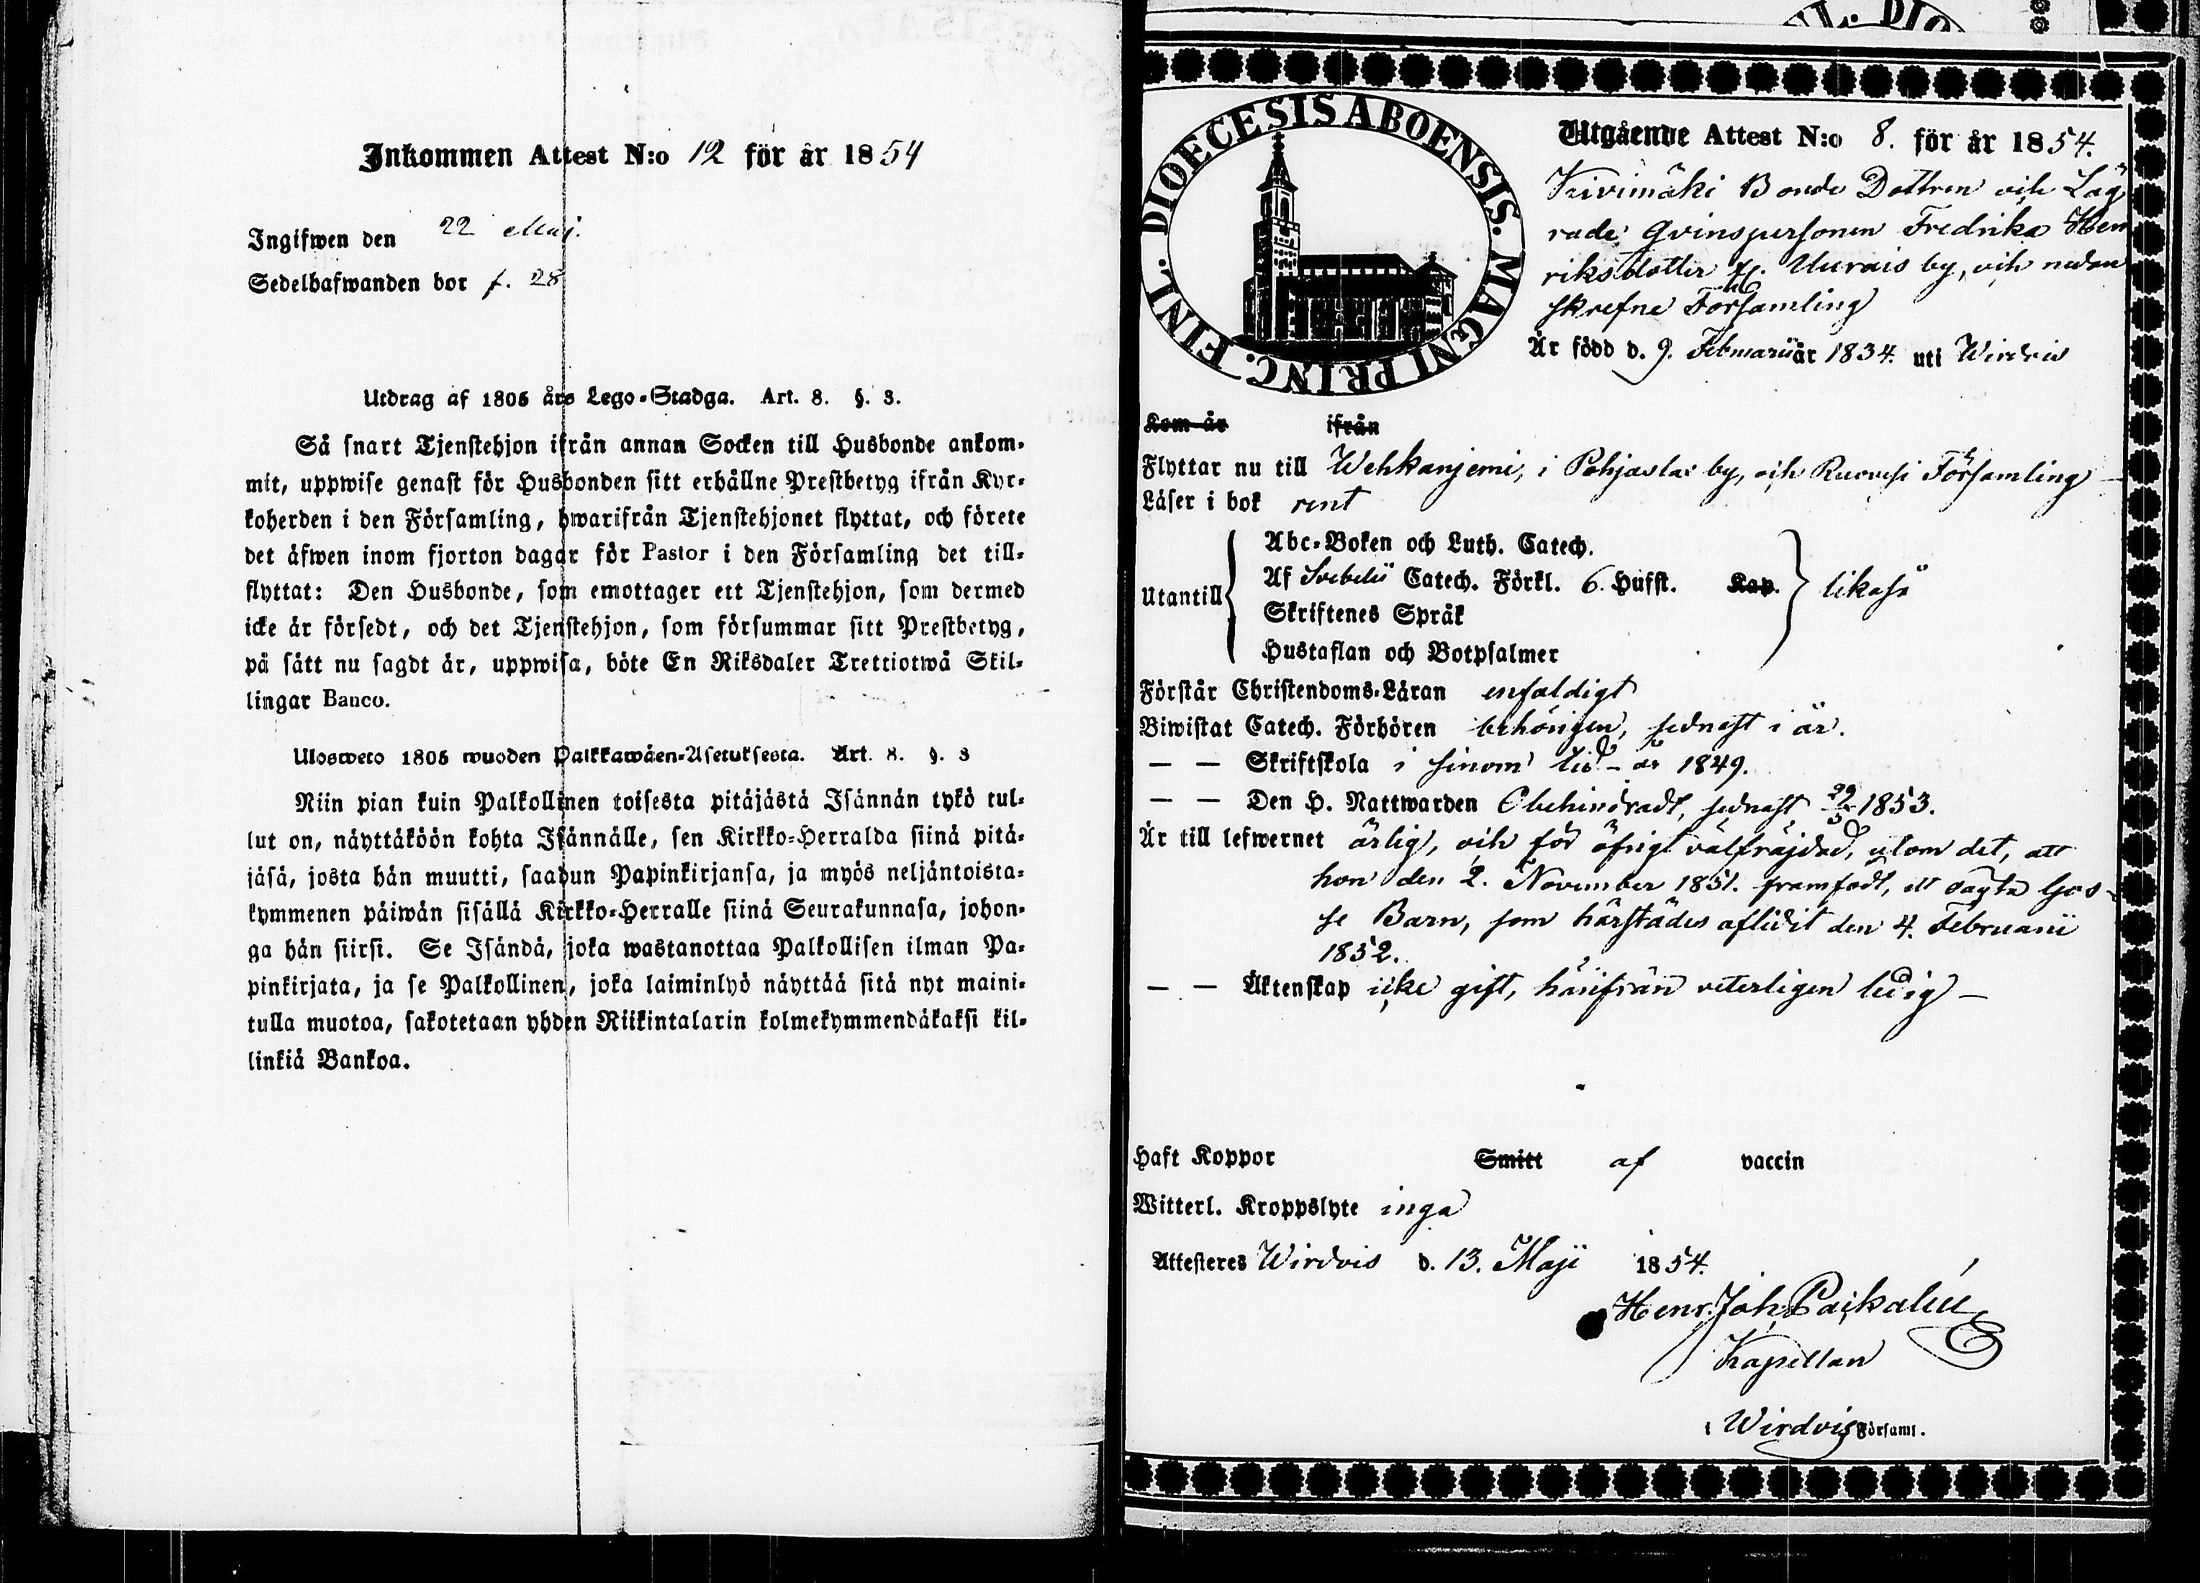 Inkommen Attest N:o 12 för år 1854
Ingifwen den 22 Maj.
Sedelhafwanden bor f. 28
Utdrag af 1805 års Lego-Stadga. Art. 8. §. 3.
Så snart Tjenstehjon ifrån annan Socken till Husbonde ankom-
mit, uppwise genast för Husbonden sitt erhållne Prestbetyg ifrån Kyr-
koherden i den Församling, hwarifrån Tjenstehjonet flyttat, och förete
det äfwen inom fjorton dagar för Pastor i den Församling det till-
flyttat: Den Husbonde, som emottager ett Tjenstehjon, som dermed
icke är försedt, och det Tjenstehjon, som försummar sitt Prestbetyg,
på sätt nu sagdt är, uppwisa, böte En Riksdaler Trettiotwå Skil-
lingar Banco.
Ulosweto 1805 wuoden Palkkawäen-Asetuksesta. Art. 8. §. 3
Niin pian kuin Palkollinen toisesta pitäjästä Isännän tykö tul-
lut on, näyttäköön kohta Isännälle, sen Kirkko-Herralda siinä pitä-
jäsä, josta hän muutti, saadun Papinkirjansa, ja myös neljäntoista-
kymmenen päiwän sisällä Kirkko-Herralle siinä Seurakunnasa, johon-
ga hän siirsi. Se Isändä, joka wastanottaa Palkollisen ilman Pa-
pinkirjata, ja se Palkollinen, joka laiminlyö näyttää sitä nyt maini-
tulla muotoa, sakotetaan yhden Riikintalarin kolmekymmendäkaksi kil-
linkiä Bankoa.
DIOECESIS ABOENSIS. MAGNI PRINC. FINL.
Utgående Attest N:o 8. för år 1854.
Kivimäki Bonde Dottren och Läg
rade Qvinspersonen Fredrika Hen
riksdotter fr. Uurais by, och nedan
skrefne Församling
Är född d. 9. Februarii år 1834. uti Wirdois
Kom år ifrån
Flyttar nu till Wehkanjemi, i Pohjaslax by, och Ruovesi Församling
Läser i bok rent
Utantill
Abc-Boken och Luth. Catech.
Af Svebelii Catech. Förkl. 6. Hufst. Kap.
Skriftenes Språk
Hustaflan och Botpsalmer
likaså
Förstår Christendoms-Läran enfaldigt
Biwistat Catech. Förhören behörigen, sednast i år.
— — Skriftskola i sinom tid - år 1849.
— — Den H. Nattwarden Obehindradt, sednast 29/5 1853.
Är till lefwernet ärlig, och för öfrigt välfräjdad, utom det, att
hon den 2. November 1851. framfödt, ett oägta Gos-
se Barn, som härstädes aflidit den 4. Februarii
1852.
— — Äktenskap icke gift, härifrån veterligen ledig —
Haft Koppor Smitt af vaccin
Witterl. Kroppslyte inga
Attesteres Wirdois d. 13. Maji 1854.
Henr. Joh. Paikalén
Kapellan
i Wirdois Församl.